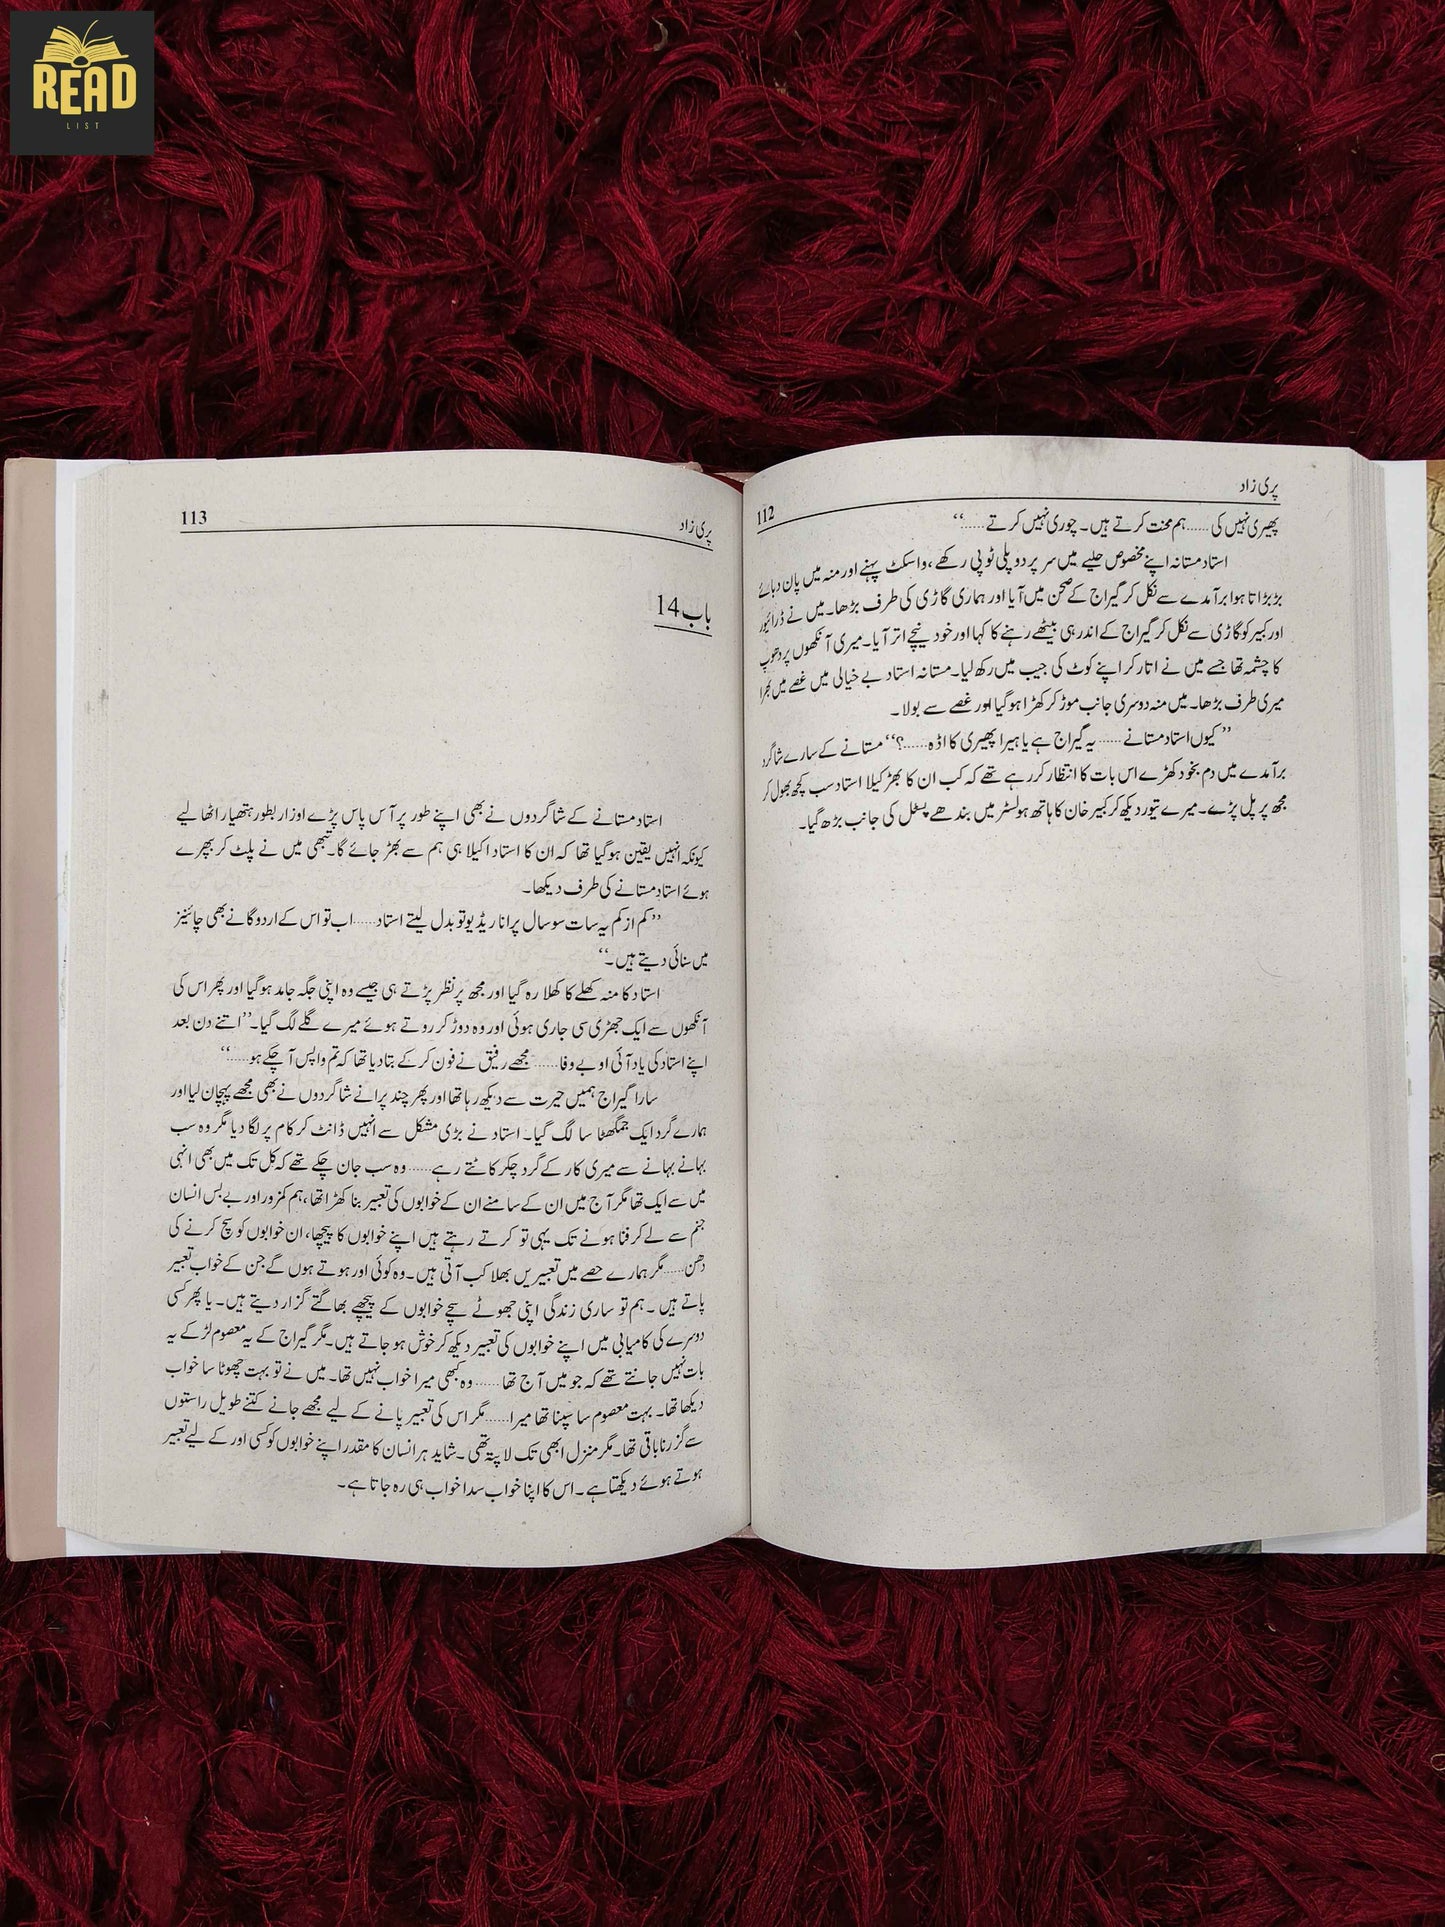 READ
LIST
پری زاد
112
پھیری نہیں کی ...... ہم محنت کرتے ہیں۔ چوری نہیں کرتے ......‘‘
استاد مستانہ اپنے مخصوص حلیے میں سر پر دو پلی ٹوپی رکھے، واسکٹ پہنے اور منہ میں پان دبائے
بڑبڑاتا ہوا برآمدے سے نکل کر گیراج کے صحن میں آیا اور ہماری گاڑی کی طرف بڑھا۔ میں نے ڈرائیور
اور کبیر کو گاڑی سے نکل کر گیراج کے اندر ہی بیٹھے رہنے کا کہا اور خود نیچے اتر آیا۔ میری آنکھوں پر دھوپ
کا چشمہ تھا جسے میں نے اتار کر اپنے کوٹ کی جیب میں رکھ لیا۔ مستانہ استاد بے خیالی میں غصے میں بھرا
میری طرف بڑھا۔ میں منہ دوسری جانب موڑ کر کھڑا ہو گیا اور غصے سے بولا۔
’’کیوں استاد مستانے ...... یہ گیراج ہے یا ہیرا پھیری کا اڈہ ......؟‘‘ مستانے کے سارے شاگرد
برآمدے میں دم بخود کھڑے اس بات کا انتظار کر رہے تھے کہ کب ان کا بھڑکیلا استاد سب کچھ بھول کر
مجھ پر پل پڑے۔ میرے تیور دیکھ کر کبیر خان کا ہاتھ ہولسٹر میں بندھے پسٹل کی جانب بڑھ گیا۔
پری زاد
113
باب 14
استاد مستانے کے شاگردوں نے بھی اپنے طور پر آس پاس پڑے اوزار بطور ہتھیار اٹھا لیے
کیونکہ انہیں یقین ہو گیا تھا کہ ان کا استاد اکیلا ہی ہم سے بھڑ جائے گا۔ تبھی میں نے پلٹ کر بپھرے
ہوئے استاد مستانے کی طرف دیکھا۔
’’کم از کم یہ سات سو سال پرانا ریڈیو تو بدل لیتے استاد ...... اب تو اس کے اردو گانے بھی چائنیز
میں سنائی دیتے ہیں۔‘‘
استاد کا منہ کھلے کا کھلا رہ گیا اور مجھ پر نظر پڑتے ہی جیسے وہ اپنی جگہ جامد ہو گیا اور پھر اس کی
آنکھوں سے ایک جھڑی سی جاری ہوئی اور وہ دوڑ کر روتے ہوئے میرے گلے لگ گیا۔ ’’اتنے دن بعد
اپنے استاد کی یاد آئی او بے وفا ...... مجھے رفیق نے فون کر کے بتا دیا تھا کہ تم واپس آ چکے ہو ......‘‘
سارا گیراج ہمیں حیرت سے دیکھ رہا تھا اور پھر چند پرانے شاگردوں نے بھی مجھے پہچان لیا اور
ہمارے گرد ایک جمگھٹا سا لگ گیا۔ استاد نے بڑی مشکل سے انہیں ڈانٹ کر کام پر لگا دیا مگر وہ سب
بہانے بہانے سے میری کار کے گرد چکر کاٹتے رہے ...... وہ سب جان چکے تھے کہ کل تک میں بھی انہی
میں سے ایک تھا مگر آج میں ان کے سامنے ان کے خوابوں کی تعبیر بنا کھڑا تھا، ہم کمزور اور بے بس انسان
جنم سے لے کر فنا ہونے تک یہی تو کرتے رہتے ہیں اپنے خوابوں کا پیچھا، ان خوابوں کو سچ کرنے کی
دھن ...... مگر ہمارے حصے میں تعبیریں بھلا کب آتی ہیں۔ وہ کوئی اور ہوتے ہوں گے جن کے خواب تعبیر
پاتے ہیں۔ ہم تو ساری زندگی اپنی جھوٹے سچے خوابوں کے پیچھے بھاگتے گزار دیتے ہیں۔ یا پھر کسی
دوسرے کی کامیابی میں اپنے خوابوں کی تعبیر دیکھ کر خوش ہو جاتے ہیں۔ مگر گیراج کے یہ معصوم لڑکے یہ
بات نہیں جانتے تھے کہ جو میں آج تھا ...... وہ کبھی میرا خواب نہیں تھا۔ میں نے تو بہت چھوٹا سا خواب
دیکھا تھا۔ بہت معصوم سا سپنا تھا میرا ...... مگر اس کی تعبیر پانے کے لیے مجھے جانے کتنے طویل راستوں
سے گزرنا باقی تھا۔ مگر منزل ابھی تک لاپتہ تھی۔ شاید ہر انسان کا مقدر اپنے خوابوں کو کسی اور کے لیے تعبیر
ہوتے ہوئے دیکھتا ہے۔ اس کا اپنا خواب سدا خواب ہی رہ جاتا ہے۔